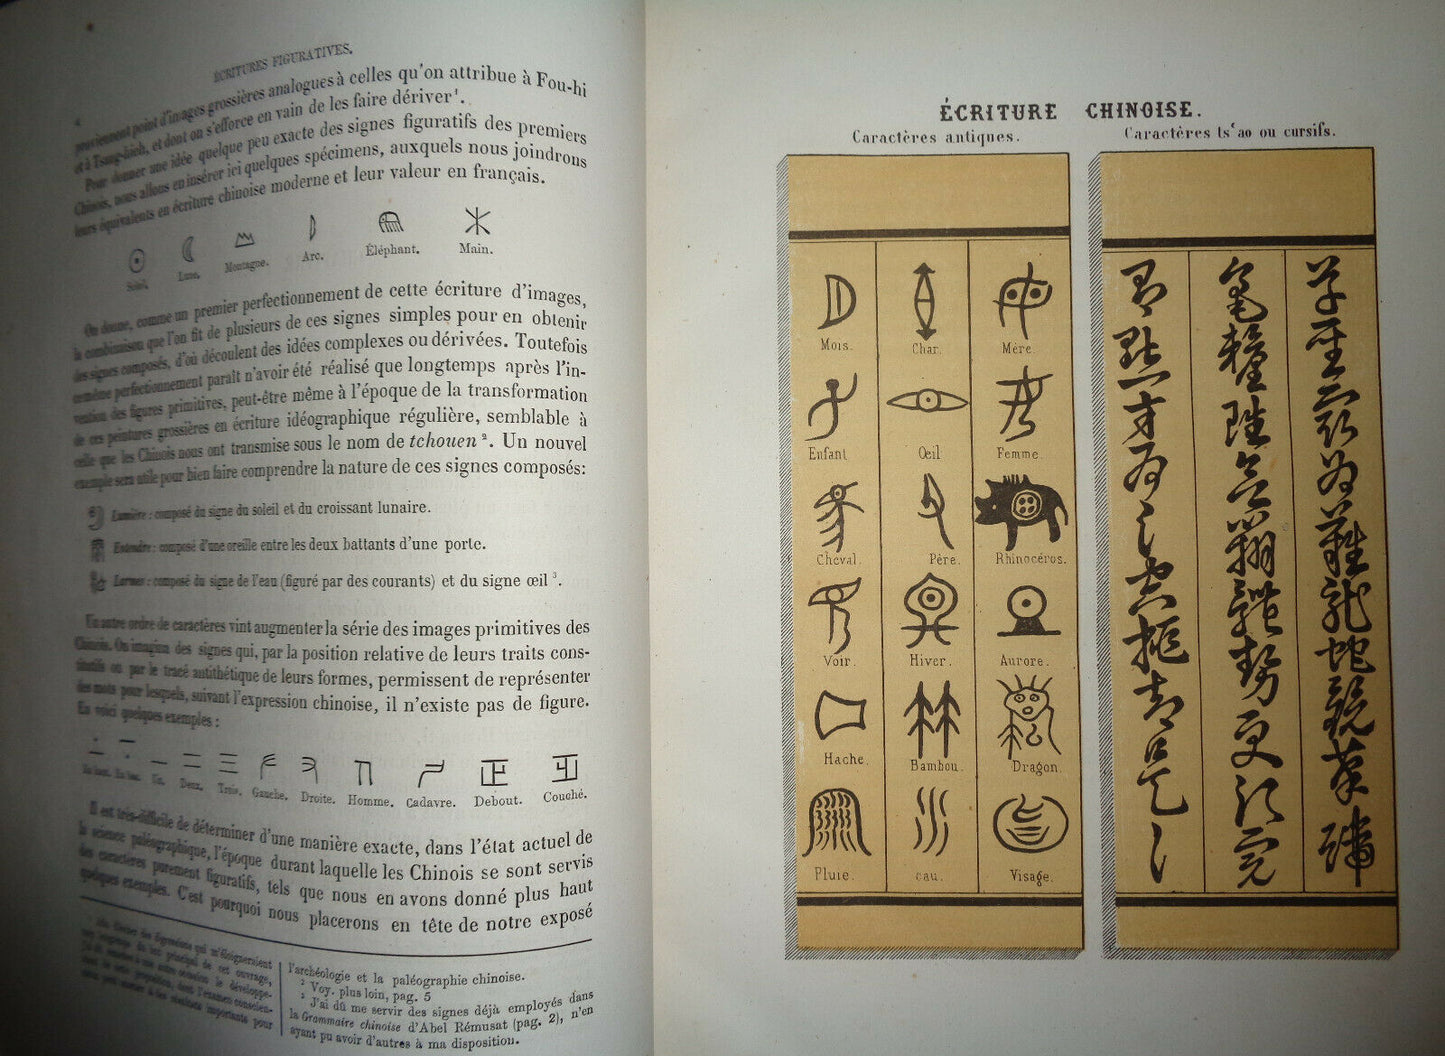 4
ÉCRITURES FIGURATIVES.
proviennent point d'images grossières analogues à celles qu'on attribue à Fou-hi
et à Tsang-hieh, et dont on s'efforce en vain de les faire dériver¹.
Pour donner une idée quelque peu exacte des signes figuratifs des premiers
Chinois, nous allons en insérer ici quelques spécimens, auxquels nous joindrons
leurs équivalents en écriture chinoise moderne et leur valeur en français.
Soleil. Lune. Montagne. Arc. Éléphant. Main.
On donne, comme un premier perfectionnement de cette écriture d'images,
la combinaison que l'on fit de plusieurs de ces signes simples pour en obtenir
des signes composés, d'où découlent des idées complexes ou dérivées. Toutefois
ce même perfectionnement paraît n'avoir été réalisé que longtemps après l'in-
vention des figures primitives, peut-être même à l'époque de la transformation
de ces peintures grossières en écriture idéographique régulière, semblable à
celle que les Chinois nous ont transmise sous le nom de tchouen². Un nouvel
exemple sera utile pour bien faire comprendre la nature de ces signes composés:
Lumière : composé du signe du soleil et du croissant lunaire.
Entendre : composé d'une oreille entre les deux battants d'une porte.
Larmes : composé du signe de l'eau (figuré par des courants) et du signe œil³.
Un autre ordre de caractères vint augmenter la série des images primitives des
Chinois. On imagina des signes qui, par la position relative de leurs traits cons-
titutifs ou par le tracé antithétique de leurs formes, permissent de représenter
des mots pour lesquels, suivant l'expression chinoise, il n'existe pas de figure.
En voici quelques exemples :
En haut. En bas. Un. Deux. Trois. Gauche. Droite. Homme. Cadavre. Debout. Couché.
Il est très-difficile de déterminer d'une manière exacte, dans l'état actuel de
la science paléographique, l'époque durant laquelle les Chinois se sont servis
des caractères purement figuratifs, tels que nous en avons donné plus haut
quelques exemples. C'est pourquoi nous placerons en tête de notre exposé
¹ des digressions qui m'éloigneraient
du but principal de cet ouvrage,
à une autre occasion le développe-
de cette proposition, dont l'examen conscien-
peut mener à des résultats importants pour
l'archéologie et la paléographie chinoise.
² Voy. plus loin, pag. 5
³ J'ai dû me servir des signes déjà employés dans
la Grammaire chinoise d'Abel Rémusat (pag. 2), n'en
ayant pu avoir d'autres à ma disposition.
ÉCRITURE CHINOISE.
Caractères antiques.
Mois. Char. Mère.
Enfant Œil Femme.
Cheval. Père. Rhinocéros.
Voir. Hiver. Aurore.
Hache. Bambou. Dragon.
Pluie. eau. Visage.
Caractères ts'ao ou cursifs.